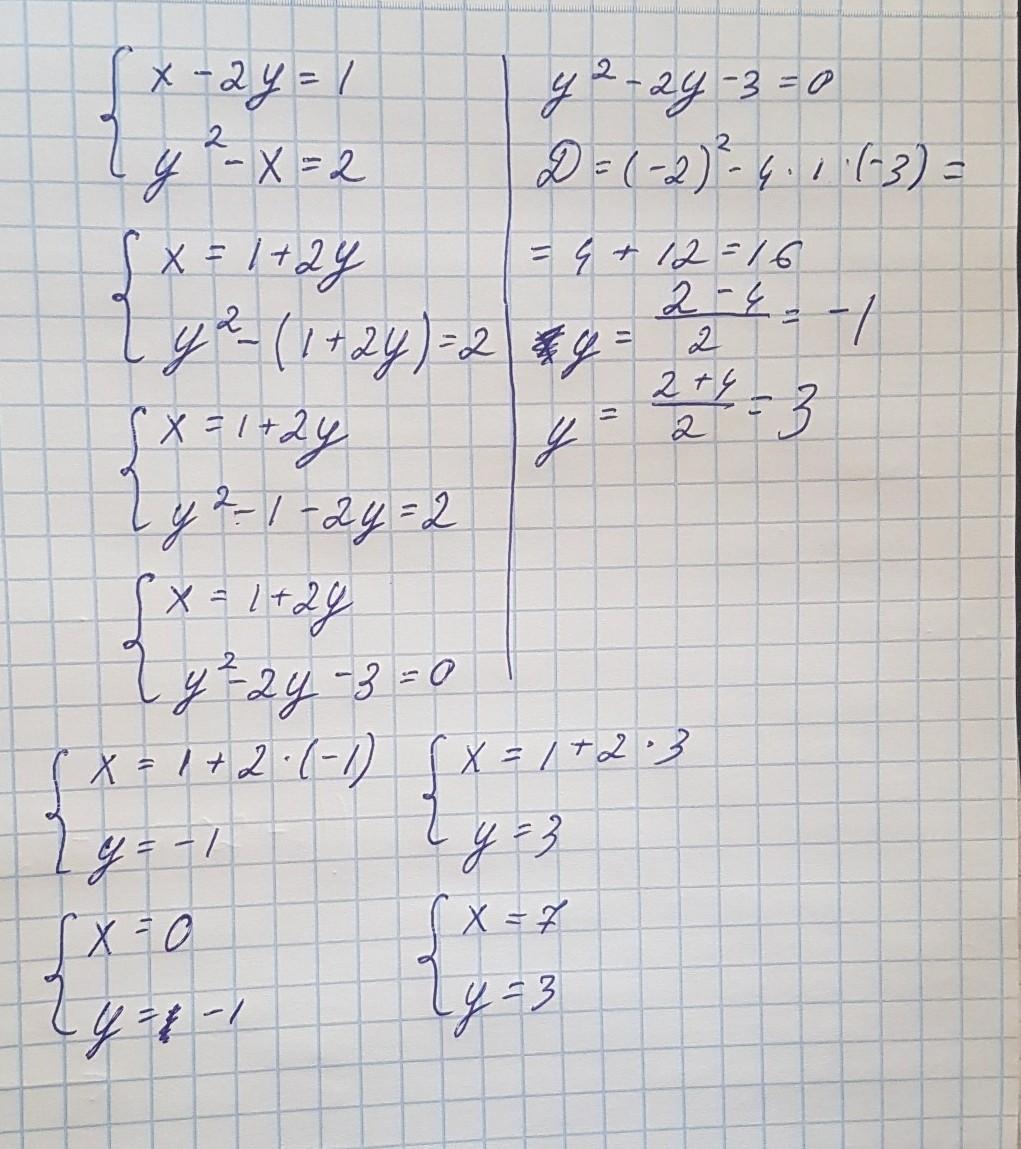 x - 2y = 1
y² - x = 2
x = 1 + 2y
y² - (1 + 2y) = 2
x = 1 + 2y
y² - 1 - 2y = 2
x = 1 + 2y
y² - 2y - 3 = 0
y² - 2y - 3 = 0
D = (-2)² - 4 · 1 · (-3) =
= 4 + 12 = 16
y = (2 - 4)/2 = -1
y = (2 + 4)/2 = 3
x = 1 + 2 · (-1)
y = -1
x = 1 + 2 · 3
y = 3
x = 0
y = -1
x = 7
y = 3